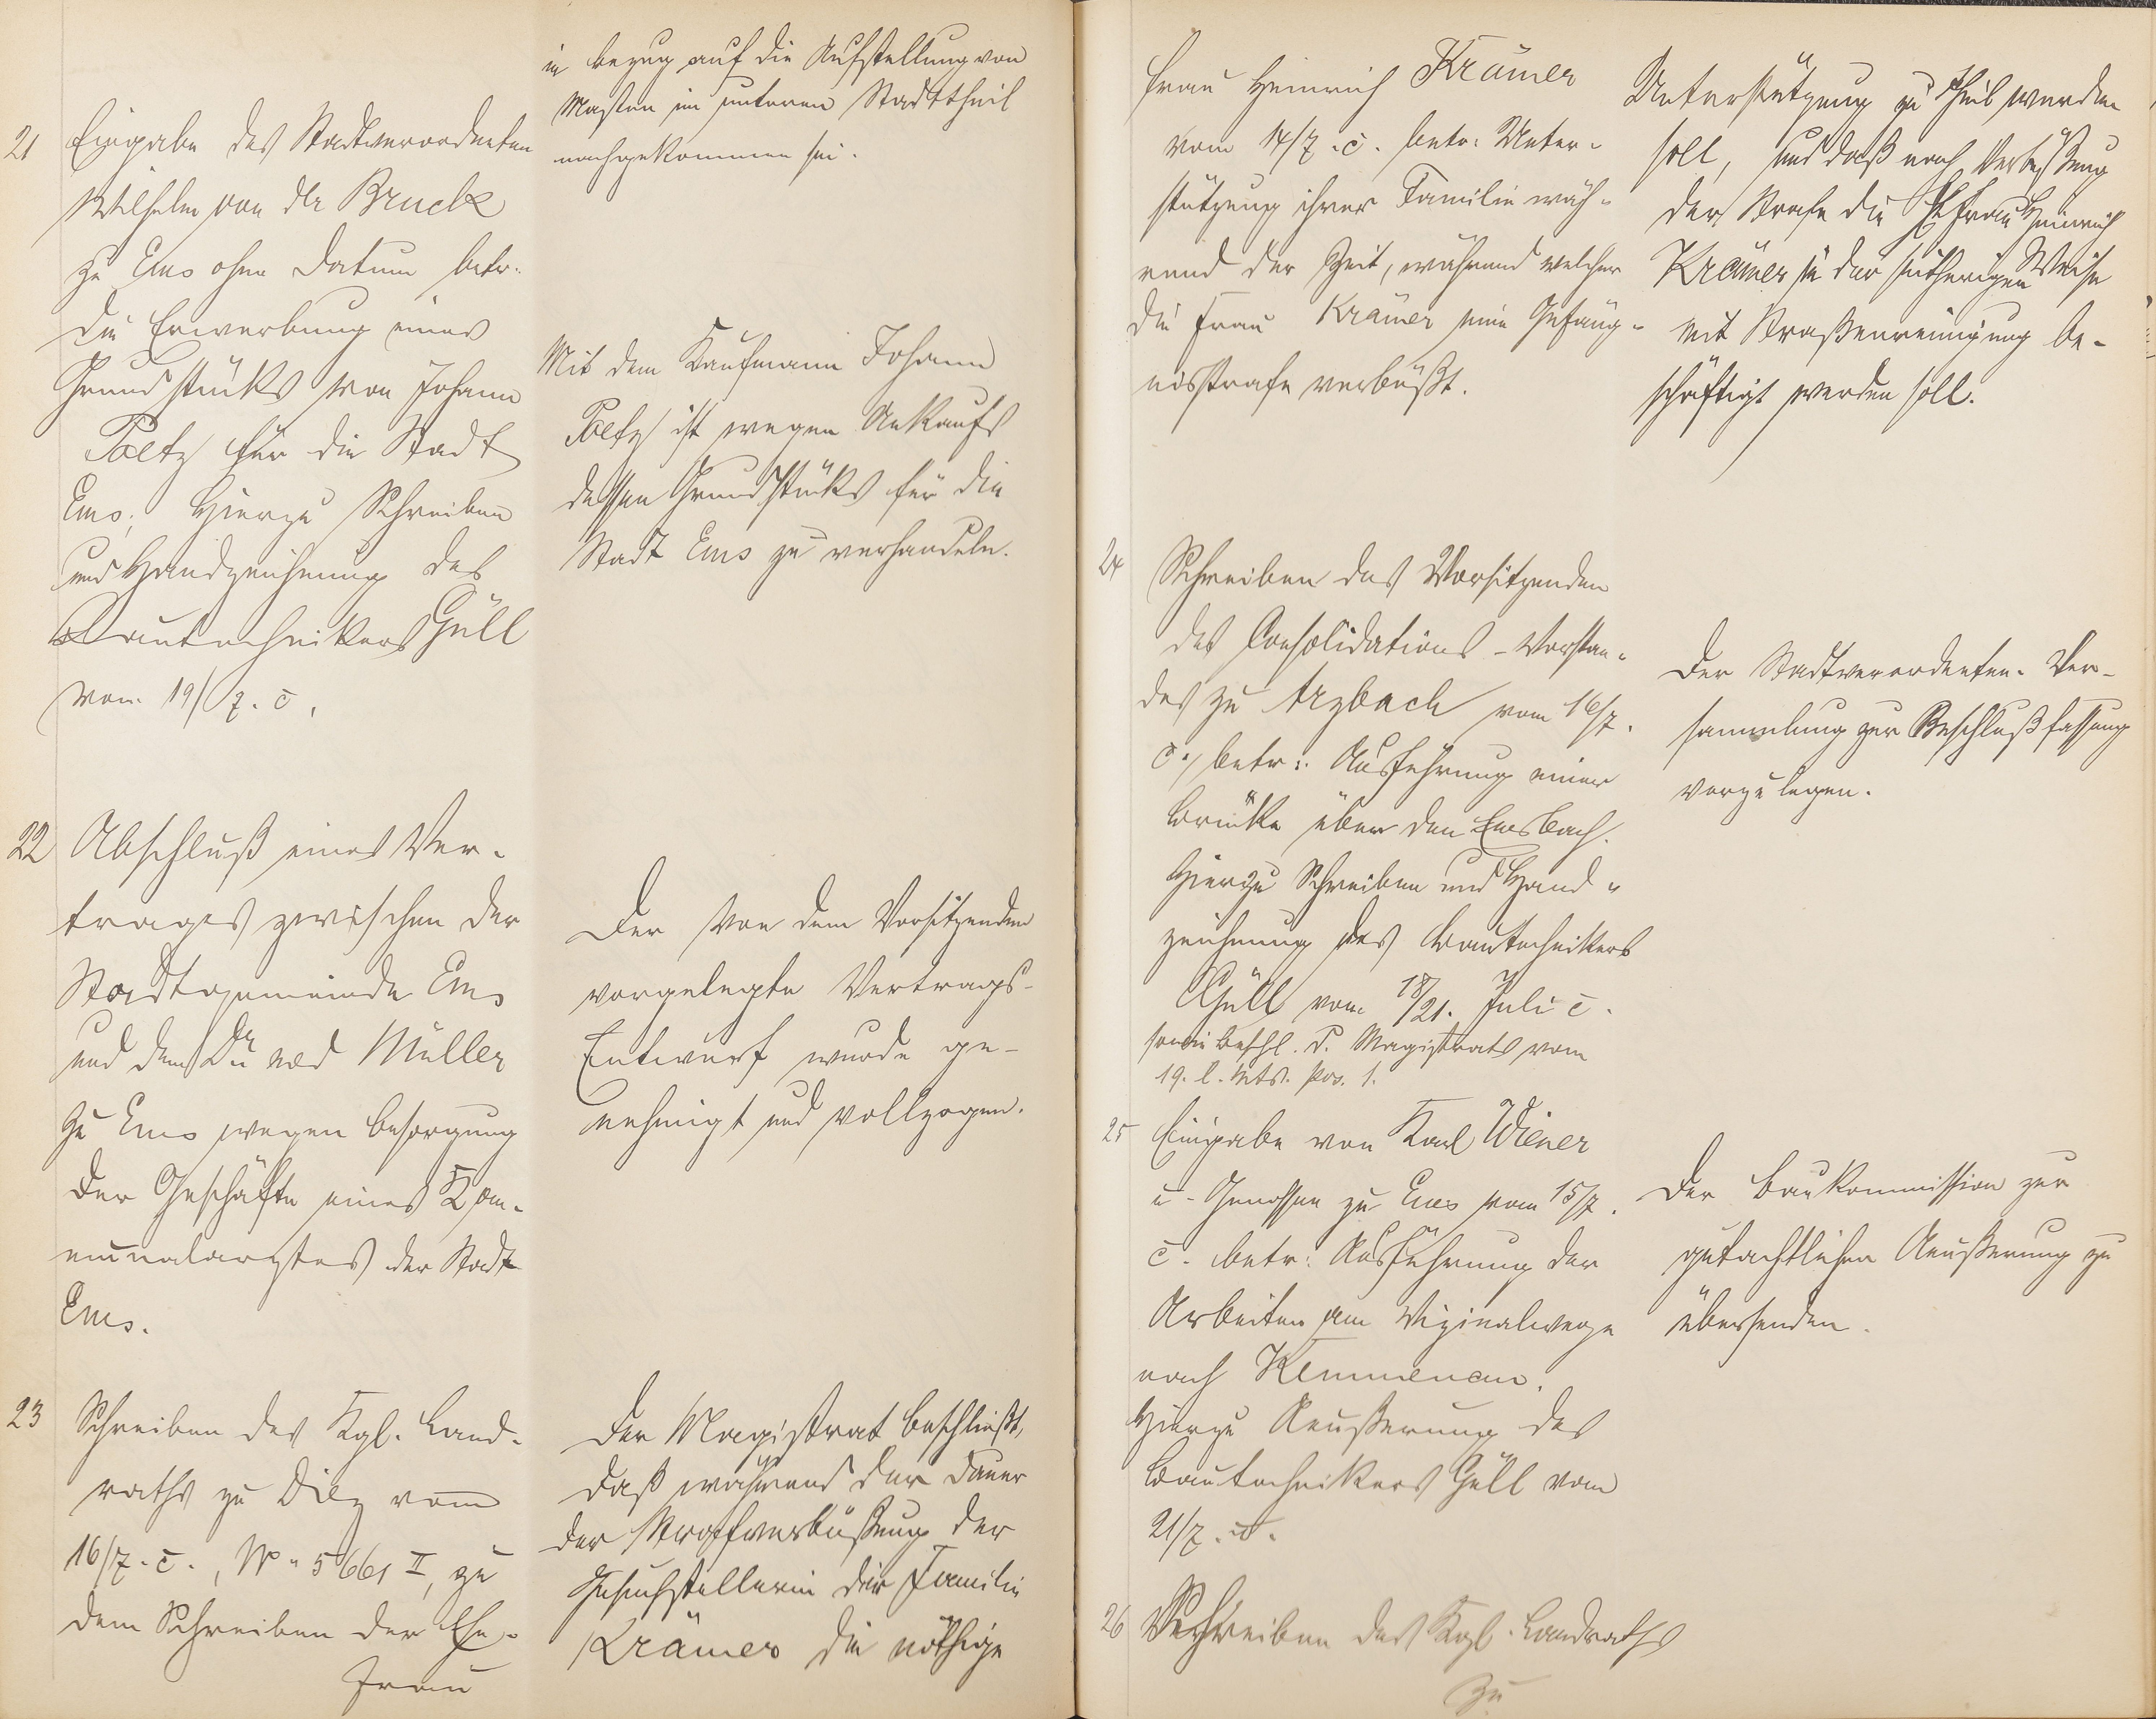 in bezug auf die Aufstellung von
Masten im unteren Stadttheil
nachgekommen sei.
21 Eingabe des Stadtverordneten
Wilhelm von der Bruck
zu Ems ohne Datum betr.
die Erwerbung eines
Grundstücks von Johann
Poeltz für die Stadt
Ems; Hierzu Schreiben
und Handzeichnung des
Bautechnikers Güll
vom 19/7. c.
Mit dem Kaufmann Johann
Poeltz ist wegen Ankaufs
dessen Grundstücks für die
Stadt Ems zu verhandeln.
22 Abschluß eines Ver-
trages zwischen der
Stadtgemeinde Ems
und dem Dr. med Müller
zu Ems wegen Besorgung
der Geschäfte eines Kom-
munalarztes der Stadt
Ems.
Der von dem Vorsitzenden
vorgelegte Vertrags-
Entwurf wurde ge-
nehmigt und vollzogen.
23 Schreiben des Kgl. Land-
raths zu Diez vom
16/7. c., No. 5661 II, zu
dem Schreiben der Ehe-
frau
Der Magistrat beschließt,
daß während der Dauer
der Strafverbüßung der
Gesuchstellerin der Familie
Krämer die nöthige
Frau Heinrich Krämer
vom 14/7. c. betr. Unter-
stützung ihrer Familie wäh-
rend der Zeit, während welcher
die Frau Krämer eine Gefäng-
nisstrafe verbüßt.
Unterstützung zu Theil werden
soll, und daß nach Verbüßung
der Strafe die Ehefrau Heinrich
Krämer in der seitherigen Weise
mit Straßenreinigung be-
schäftigt werden soll.
24 Schreiben des Vorsitzenden
des Consolidations-Vorstan-
des zu Arzbach vom 16/7.
c., betr.: Ausführung einer
Brücke über den Emsbach.
Hierzu Schreiben und Hand-
zeichnung des Bautechnikers
Güll vom 18/21. Juli c.
sowie Beschl. d. Magistrats vom
19. l. Mts. Pos. 1.
Der Stadtverordneten-Ver-
sammlung zur Beschlußfassung
vorzulegen.
25 Eingabe von Karl Wiener
u. Genossen zu Ems vom 15/7.
c. betr: Ausführung der
Arbeiten am Vizinalwege
nach Kemmenau.
Hierzu Aeußerung des
Bautechnikers Güll vom
21/7. c.
Der Baukommission zur
gutachtlichen Aeußerung zu
übersenden.
26 Schreiben des Kgl. Landraths
zu